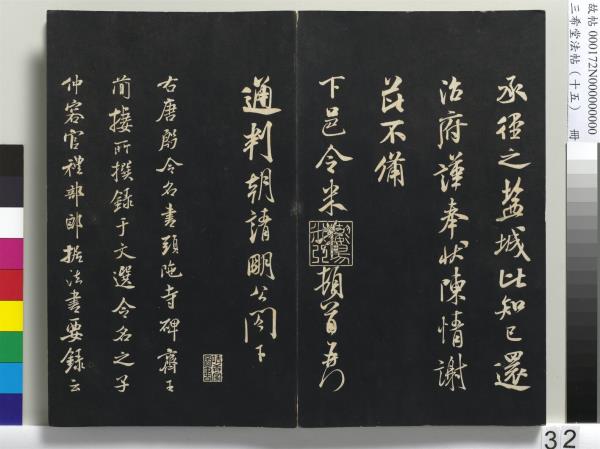 承徑之盐城比知已還
治府謹奉狀陳情謝
茲不備
下邑令米 頓首再
通判朝請明公閤下
右唐殷令名書頭陁寺碑齊王
簡捿所撰錄于文選令名之子
仲容官禮部郎据法書要録云
故帖 000172N000000000
三希堂法帖（十五） 冊
32